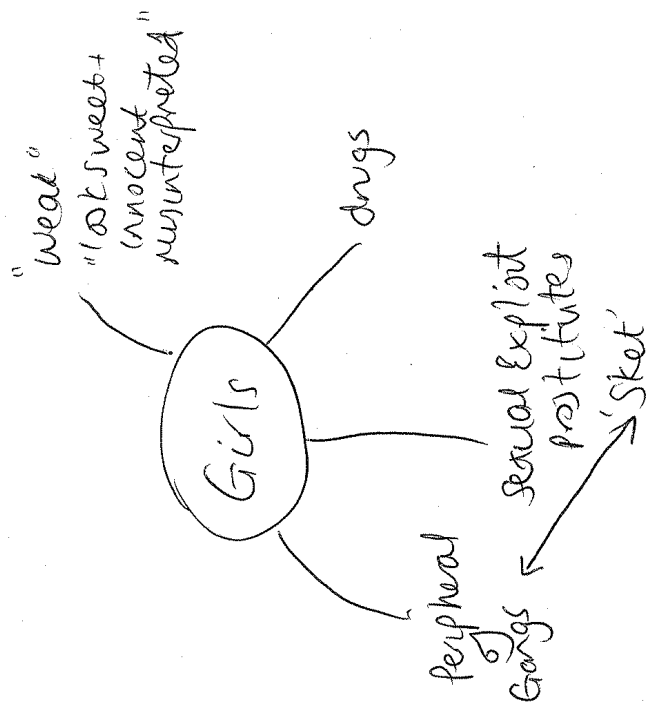 "weak"
"look sweet +
innocent
misinterpreted"
drugs
Girls
sexual Exploit
prostitutes
'sket'
Peripheral
Gangs